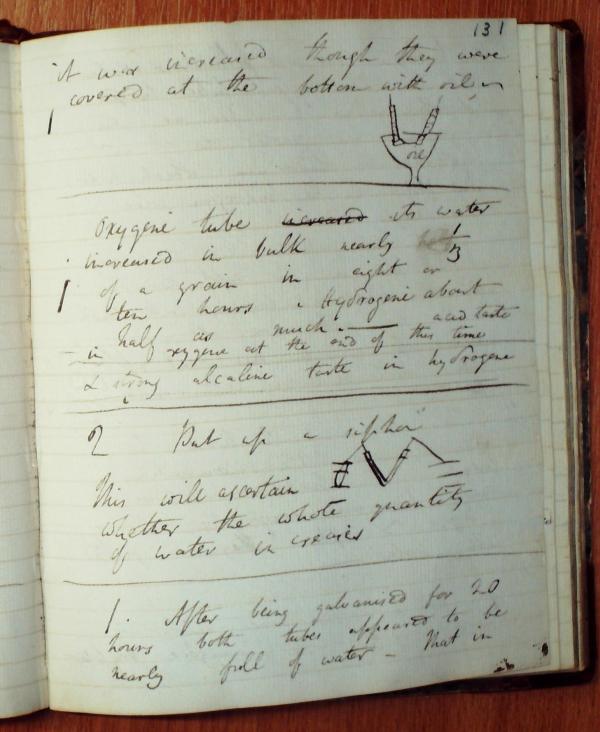 131
it was increased though they were
covered at the bottom with oil
oil
oxygene tube increased its water
increased in bulk nearly 1/3
of a grain in eight or
ten hours. Hydrogene about
half as much. — acid taste
in oxygene at the end of this time
& strong alcaline taste in hydrogene
2 Put up a siphon
This will ascertain
whether the whole quantity
of water increases
1. After being galvanised for 20
hours both tubes appeared to be
nearly full of water — That in